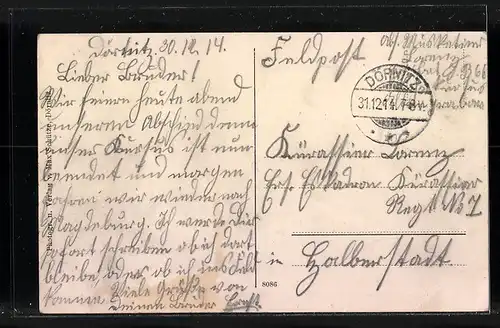 Dörnitz, 30.12.14.
Lieber Bruder!
Wir feiern heute abend
unseren Abschied denn
unser Kursus ist nun
beendet und morgen
fahren wir wieder nach
Magdeburg. Ich werde dir
sofort schreiben ob ich dort
bleibe, oder ob ich ins Feld
komme. Viele Grüße von
deinem Bruder Ernst
Feldpost
Abs. Musketier
Lorenz
DÖRNITZ
31.12.14. 7-8
Kürassier Lorenz
Ers. Eskadron Kürassier
Regt. No 7
in Halberstadt
8086
Photogr. u. Verlag v. Max